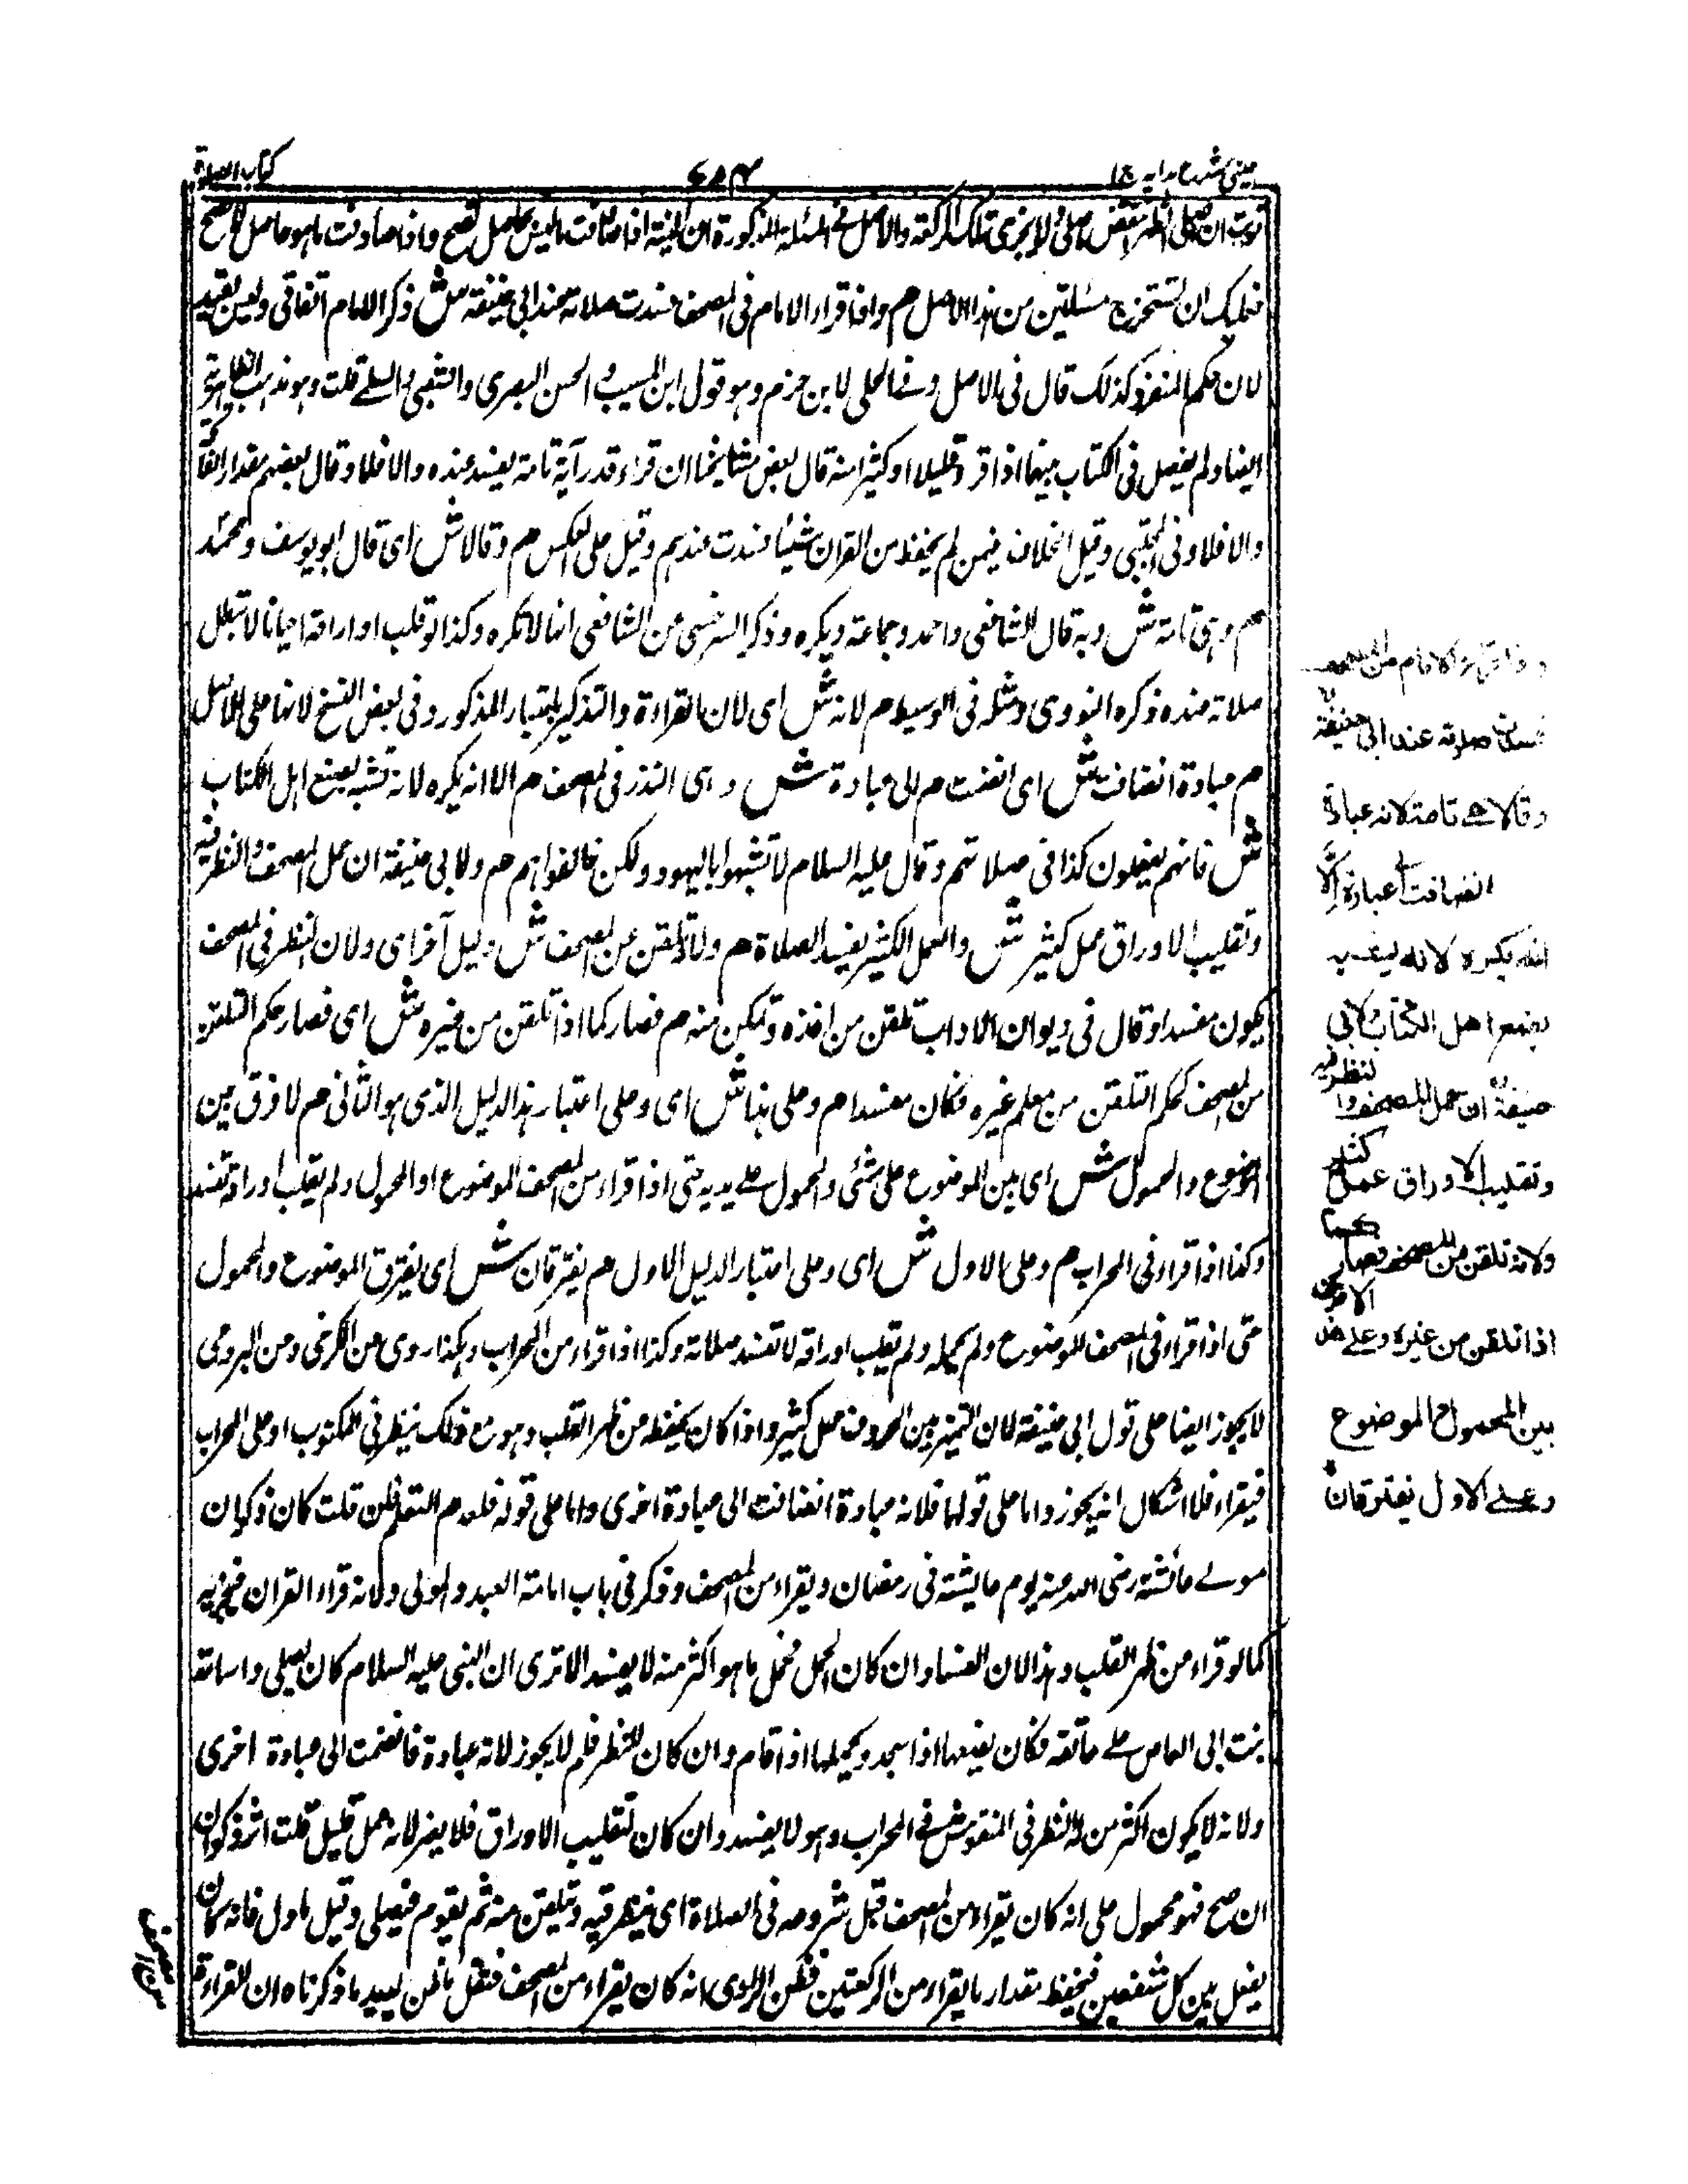 عينى شرح هدايه ج١
كتاب الصلوة
نويت ان اصلى الظهر انتقض ما صلى ولا يجزى تلك الركعة والاصل فى المسئلة المذكورة ان النية اذا صادفت ما ليس بحاصل تصح واذا صادفت ما هو حاصل لا تصح
فعليك ان تستخرج مسئلتين من هذا الاصل م واذا قراء الامام فى المصحف فسدت صلاته عند ابى حنيفة ش ذكر الامام اتفاقى وليس بقيد
لان حكم المنفرد كذلك قال فى الاصل وفى المحلى لابن حزم وهو قول ابن المسيب والحسن البصرى والشعبى والسلمى قلت وهو مذهب الظاهرية
ايضا ولم يفصل فى الكتاب بينما اذا قرء قليلا او كثيرا منه قال بعض مشايخنا ان قراء قدر آية تامة يفسد عنده والا فلا وقال بعضهم مقدار الفاتحة
والا فلا وفى المجتبى وقيل الخلاف فيمن لم يحفظ من القران شيئا فسدت عندهم وقيل على العكس م وقالا ش اى قال ابو يوسف ومحمد
م وهى تامة ش وبه قال الشافعى واحمد وجماعة ويكره وذكر السرخسى من الشافعى انها لا تكره وكذا لو قلب اوراقه احيانا لا تبطل
صلاته عنده ذكره النووى ومثله فى الوسيط م لانه ش اى لان القراءة والتذكير باعتبار المذكور وفى بعض النسخ لانها على الاصل
م عبادة انضافت ش اى انضمت م الى عبادة ش وهى النذر فى المصحف م الا انه يكره لانه تشبه بصنع اهل الكتاب
ش فانهم يفعلون كذا فى صلاتهم وقال عليه السلام لا تشبهوا باليهود ولكن خالفواهم م ولابى حنيفة ان حمل المصحف والنظر فيه
وتقليب الاوراق عمل كثير ش والعمل الكثير يفسد الصلاة م ولانه تلقن من المصحف ش دليل آخر اى ولان النظر فى المصحف
يكون مفسدا وقال فى ديوان الاداب تلقن من اخذه وتمكن منه م فصار كما اذا تلقن من غيره ش اى فصار حكم التلقن
من المصحف كحكم التلقن من معلم غيره فكان مفسدا م وعلى هذا ش اى وعلى اعتبار هذا الدليل الذى هو الثانى م لا فرق بين
الموضوع والمحمول ش اى بين الموضوع على شئى والمحمول على يديه حتى اذا قراء من المصحف الموضوع او المحمول ولم يقلب اوراقه تفسد
وكذا اذا قراء فى المحراب م وعلى الاول ش اى وعلى اعتبار الدليل الاول م يفترقان ش اى يفترق الموضوع والمحمول
حتى اذا قراء فى المصحف الموضوع ولم يحمله ولم يقلب اوراقه لا تفسد صلاته وكذا اذا قراء من المحراب وهكذا روى عن الكرخى وعن البردعى
لا يجوز ايضا على قول ابى حنيفة لان التميز بين الحروف عمل كثير واذا كان يحفظه من ظهر القلب وهو مع ذلك ينظر فى المكتوب او على المحراب
فيقراء فلا اشكال انه يجوز واما على قولهما فلانه عبادة انضافت الى عبادة اخرى واما على قوله فلعدم التعلم فان قلت كان ذكوان
مولے عائشة رضى الله عنه يوم عائشة فى رمضان ويقراء من المصحف وذكر فى باب امامة العبد والمولى ولانه قراء القران فيجزيه
كما لو قراء من ظهر القلب وهذا لان الفساد ان كان لحمل فحمل ما هو اكثر منه لا يفسد الا ترى ان النبى عليه السلام كان يصلى وامامة
بنت ابى العاص على عاتقه فكان يضعها اذا سجد ويحملها اذا قام وان كان للنظر فلم لا يجوز لانه عبادة فانضمت الى عبادة اخرى
ولانه لا يكون اكثر من النظر فى المنقوش فى المحراب وهو لا يفسد وان كان لتقليب الاوراق فلا يضر لانه عمل قليل قلت اثر ذكوان
ان صح فهو محمول على انه كان يقراء من المصحف قبل شروعه فى الصلاة اى ينظر فيه ويتلقن منه ثم يقوم فيصلى وقيل ماول فانه كان
يفعل بين كل شفعين فيحفظ مقدار ما يقراء من الركعتين فظن الراوى انه كان يقراء من المصحف فنقل ما ظن يويد ما ذكرناه ان القراءة
واذا قرء الامام من المصحف
فسدت صلوته عند ابى حنيفة
وقالا هى تامة لانه عبادة
انضافت الى عبادة الا
انه يكره لانه يشبه
بصنع اهل الكتاب ولابى
حنيفة ان حمل المصحف والنظر فيه
وتقليب الاوراق عمل كثير
ولانه تلقن من المصحف فصار كما
اذا تلقن من غيره وعلى هذا لا فرق
بين المحمول والموضوع
وعلى الاول يفترقان